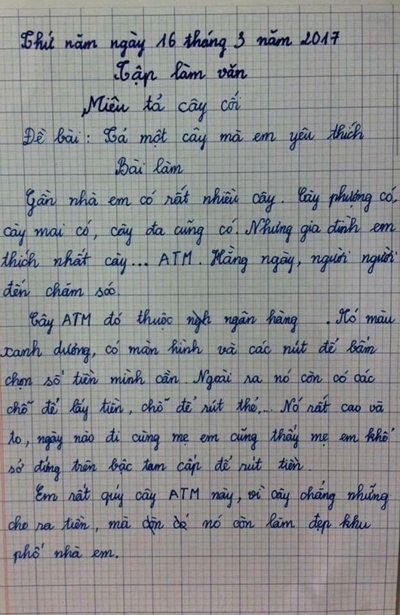 Thứ năm ngày 16 tháng 3 năm 2017
Tập làm văn
Miêu tả cây cối
Đề bài : Tả một cây mà em yêu thích
Bài làm
Gần nhà em có rất nhiều cây. Cây phượng có,
cây mai có, cây đa cũng có. Nhưng gia đình em
thích nhất cây... ATM. Hằng ngày, người người
đến chăm sóc.
Cây ATM đó thuộc ngh ngân hàng . Nó màu
xanh dương, có màn hình và các nút để bấm
chọn số tiền mình cần. Ngoài ra nó còn có các
chỗ để lấy tiền, chỗ để rút thẻ,... Nó rất cao và
to, ngày nào đi cùng mẹ em cũng thấy mẹ em khổ
sở đứng trên bậc tam cấp để rút tiền.
Em rất quý cây ATM này, vì cây chẳng những
cho ra tiền, mà nó còn làm đẹp khu
phố nhà em.